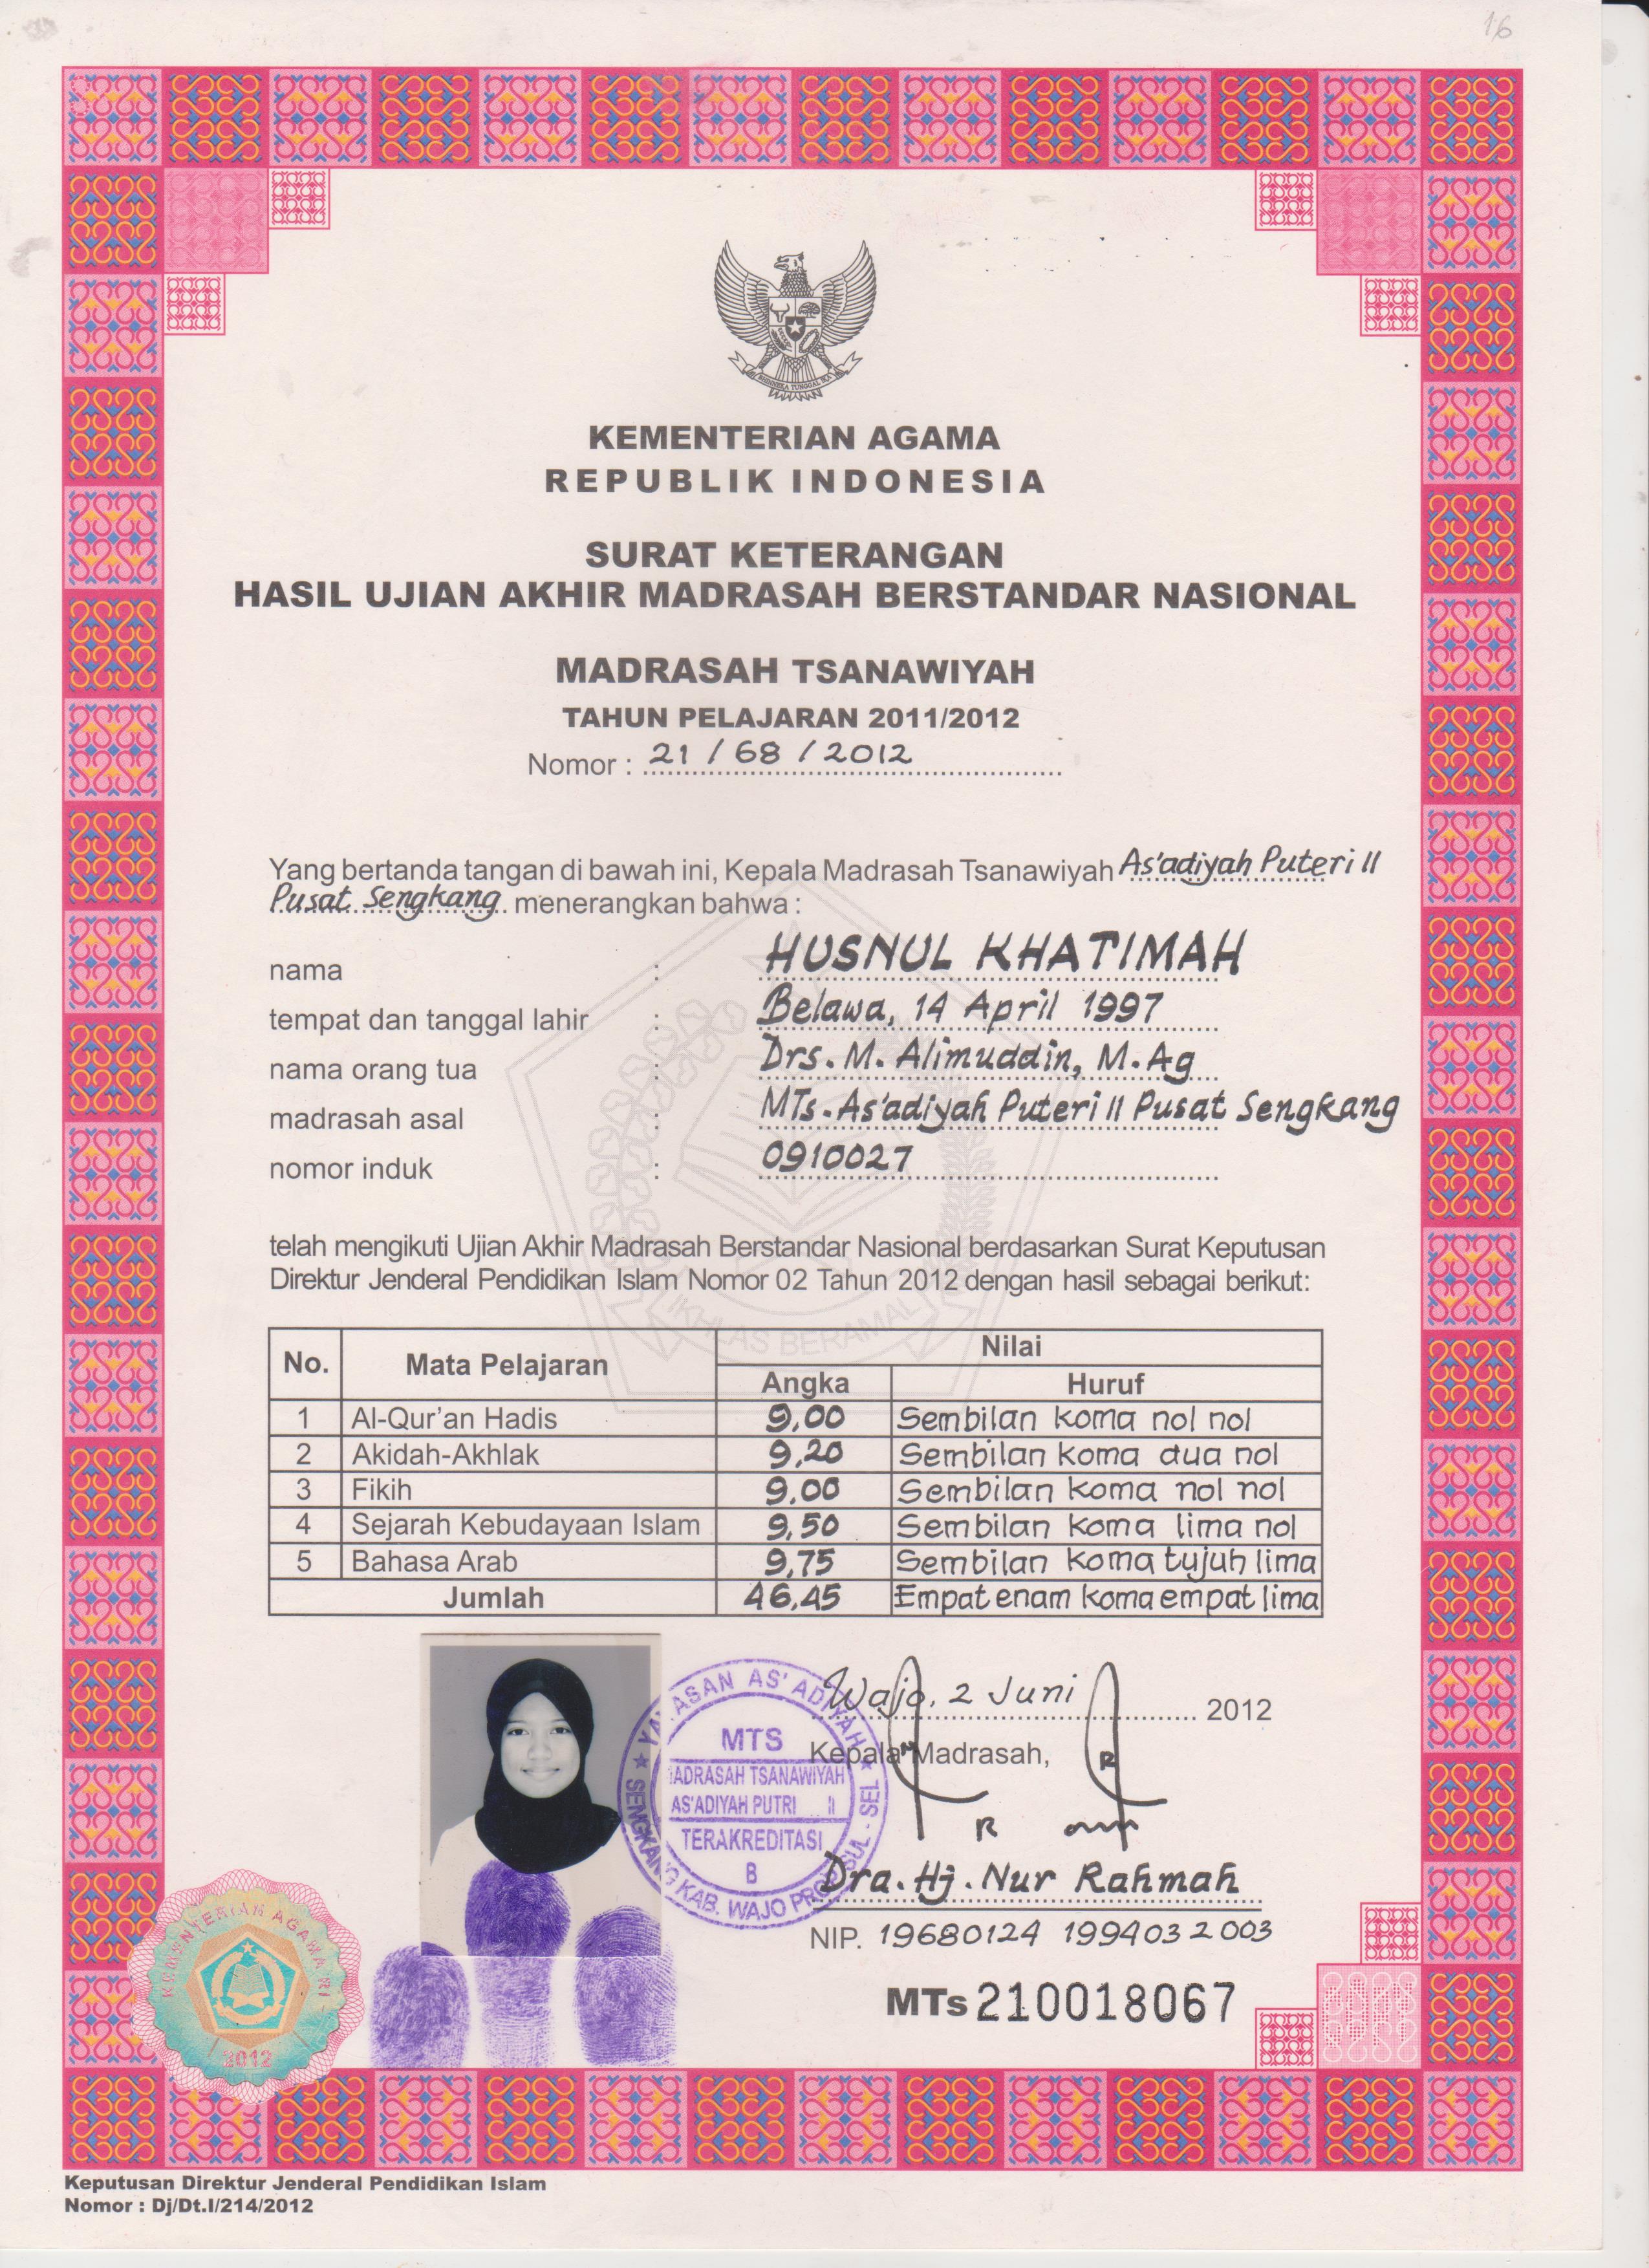 16
BHINNEKA TUNGGAL IKA
KEMENTERIAN AGAMA
REPUBLIK INDONESIA
SURAT KETERANGAN
HASIL UJIAN AKHIR MADRASAH BERSTANDAR NASIONAL
MADRASAH TSANAWIYAH
TAHUN PELAJARAN 2011/2012
Nomor : 21 / 68 / 2012
Yang bertanda tangan di bawah ini, Kepala Madrasah Tsanawiyah As'adiyah Puteri II
Pusat Sengkang menerangkan bahwa :
nama : HUSNUL KHATIMAH
tempat dan tanggal lahir : Belawa, 14 April 1997
nama orang tua : Drs. M. Alimuddin, M.Ag
madrasah asal : MTs. As'adiyah Puteri II Pusat Sengkang
nomor induk : 0910027
telah mengikuti Ujian Akhir Madrasah Berstandar Nasional berdasarkan Surat Keputusan
Direktur Jenderal Pendidikan Islam Nomor 02 Tahun 2012 dengan hasil sebagai berikut:
IKHLAS BERAMAL
No. Mata Pelajaran Nilai
Angka Huruf
1 Al-Qur'an Hadis 9,00 Sembilan koma nol nol
2 Akidah-Akhlak 9,20 Sembilan koma dua nol
3 Fikih 9,00 Sembilan koma nol nol
4 Sejarah Kebudayaan Islam 9,50 Sembilan koma lima nol
5 Bahasa Arab 9,75 Sembilan koma tujuh lima
Jumlah 46,45 Empat enam koma empat lima
Wajo, 2 Juni 2012
Kepala Madrasah,
YAYASAN AS'ADIYAH
MTS
MADRASAH TSANAWIYAH
AS'ADIYAH PUTRI II
TERAKREDITASI
B
SENGKANG KAB. WAJO PROP. SUL - SEL
Dra. Hj. Nur Rahmah
NIP. 19680124 199403 2 003
MTs 210018067
KEMENTERIAN AGAMA RI
2012
Keputusan Direktur Jenderal Pendidikan Islam
Nomor : Dj/Dt.I/214/2012